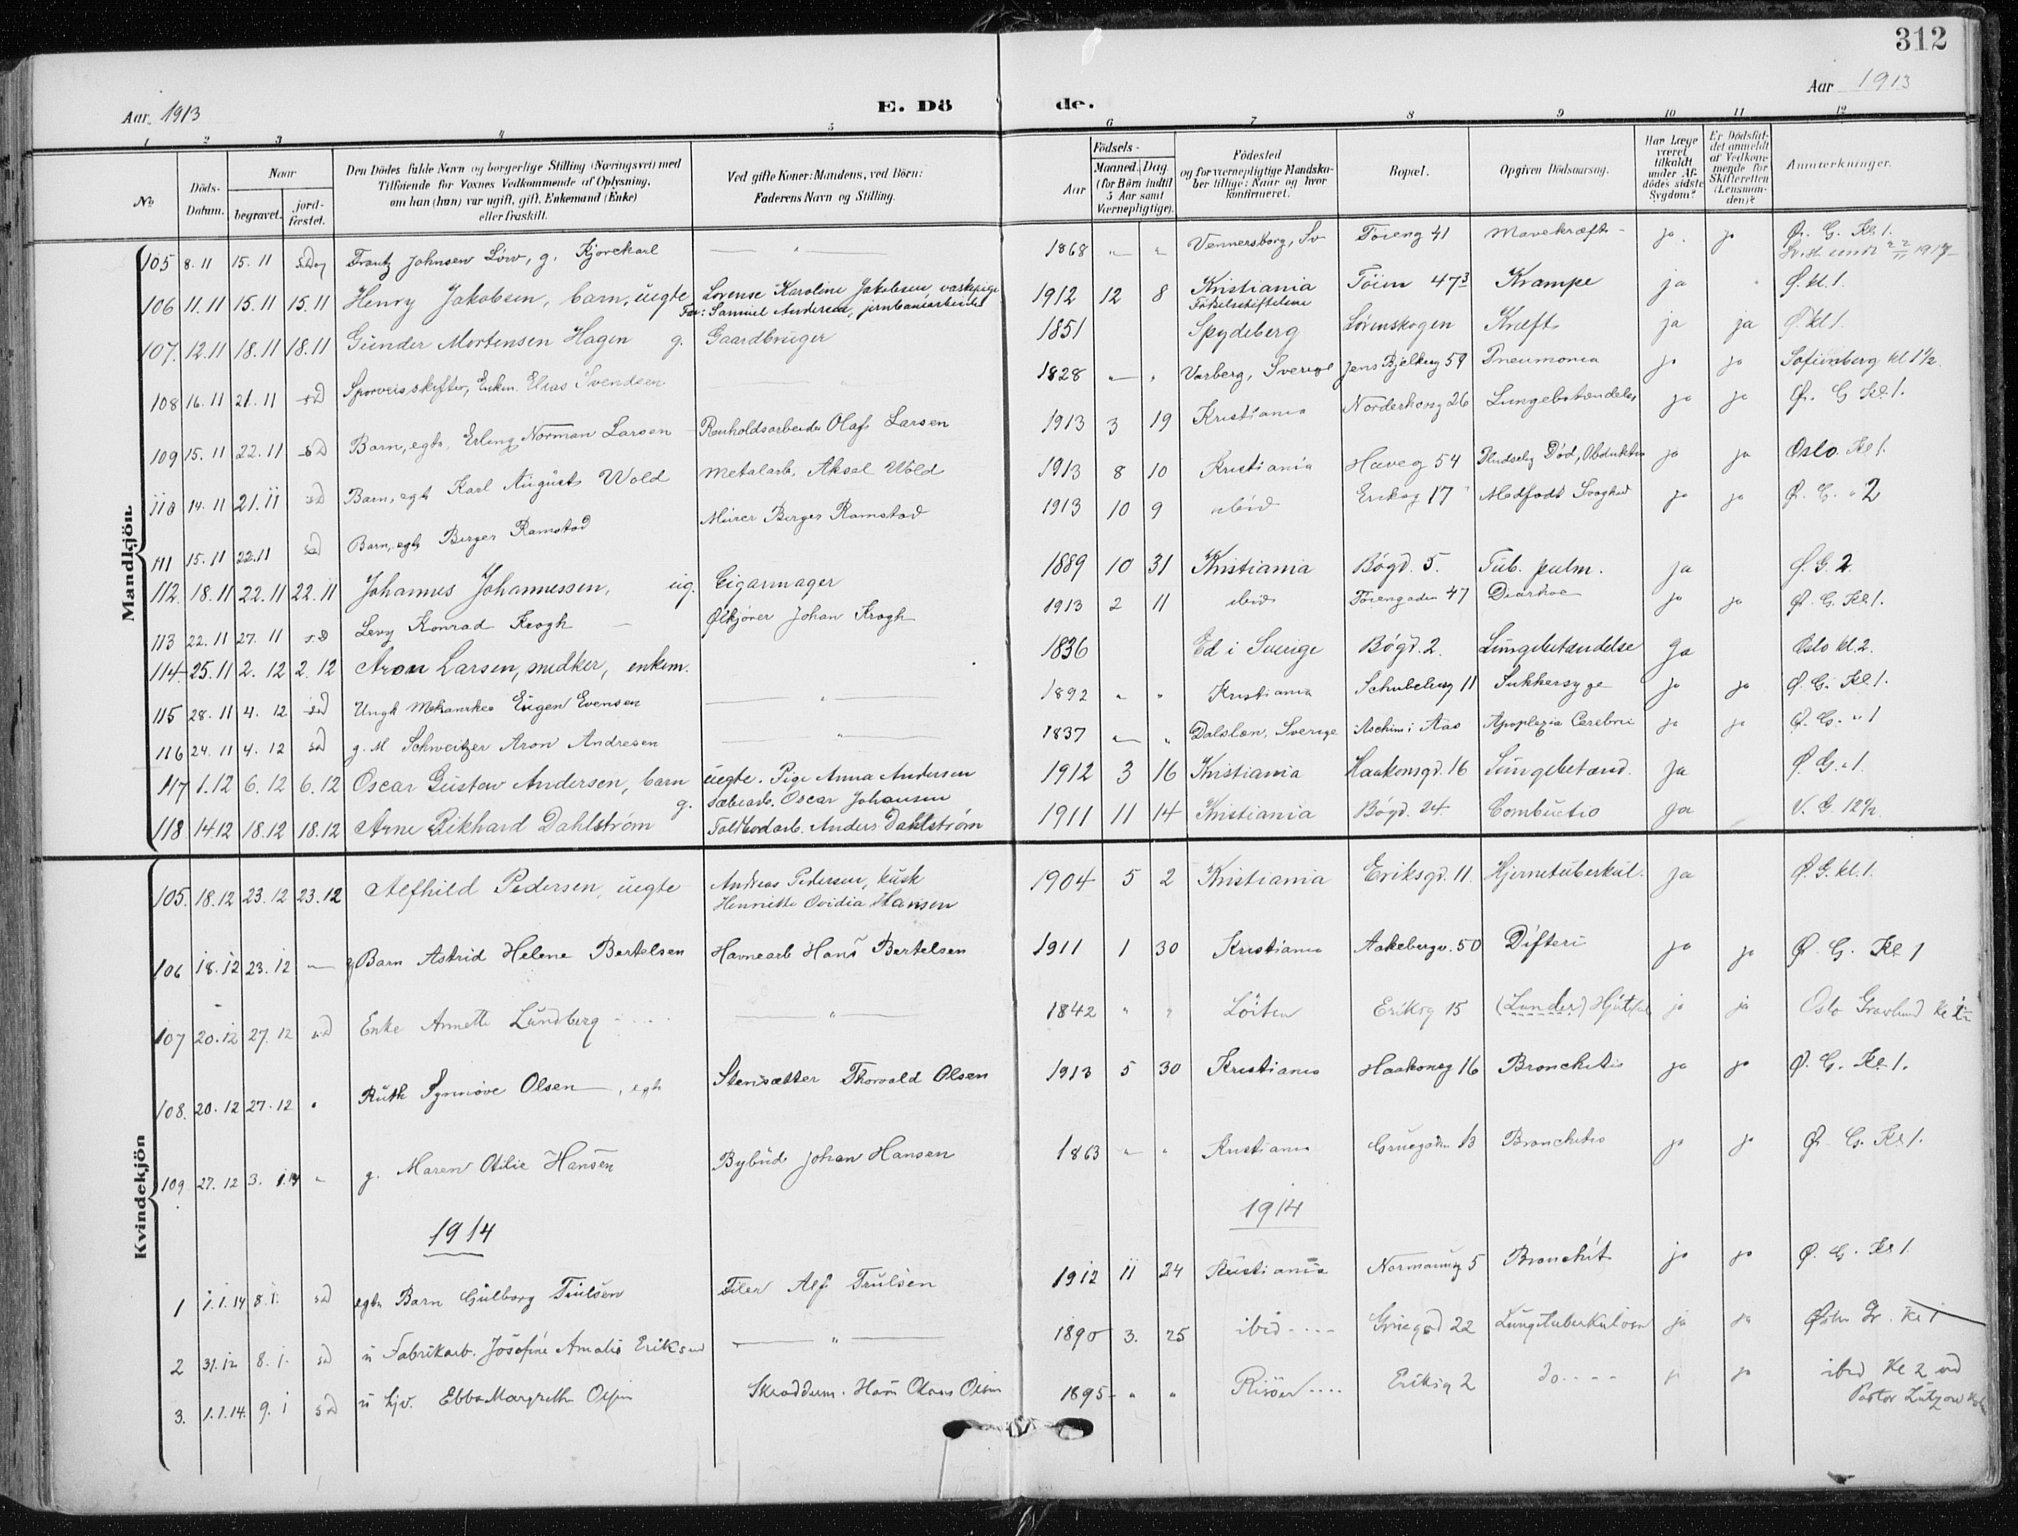 312
Aar 1913
E. Dö de.
Aar 1913
1 2 3 4 5 6 7 8 9 10 11 12
No
Döds-Datum.
Naar
begravet.
jord-fæstet.
Den Dödes fulde Navn og borgerlige Stilling (Næringsvei) med
Tilföiende for Voxnes Vedkommende af Oplysning,
om han (hun) var ugift, gift, Enkemand (Enke)
eller fraskilt.
Ved gifte Koner: Mandens, ved Börn:
Faderens Navn og Stilling.
Födsels-
Aar
Maaned. Dag
(for Börn indtil
5 Aar samt
Værnepligtige).
Födested
og for værnepligtige Mandska-
ber tillige: Naar og hvor
konfirmeret.
Bopæl.
Opgiven Dödsaarsag.
Har Læge
været
tilkaldt
under Af-
dödes sidste
Sygdom?
Er Dödsfal-
det anmeldt
af Vedkom-
mende for
Skifteretten
(Lensman-
den)?
Anmærkninger.
Mandkjön.
105 8.11 15.11 Frantz Johnsen Löw, g. Kjörekarl — " — 1868 " " Vennersborg, Sv Töieng 41 Mavekræft ja. ja Ø. G. Kl 1.
106 11.11 15.11 15.11 Henry Jakobsen, barn, uegte Lovense Karoline Jakobsen, vaskepige 1912 12 8 Kristiania Töien 47³ Krampe ja Ø. kl. 1.
Far: Samuel Andersen, jernbanearbeider Födselsstiftelsen
107. 12.11 18.11 18.11 Gunder Mortensen Hagen g. Gaardbruger 1851 Spydeberg Lörenskogen Kræft ja ja Ø. kl 1.
108 16.11 21.11 sd Sporveisskifter, Enkm. Elias Svendsen — " — 1828 " " Varberg, Sverige Jens Bjelkesg 59 Pneumonia ja ja Sofienberg kl 1½.
109 15.11 22.11 sd Barn, egte, Erling Norman Larsen Renholdsarbeider Olaf Larsen 1913 3 19 Kristiania Nordenhoug 26 Lungebetændelse ja ja Ø. G Kl 1.
110 14.11 21.11 sd Barn, egte Karl August Wold Metalarb. Aksel Wold 1913 8 10 Kristiania Haveg 54 Pludselig Död, Obduktion ja ja Oslo Kl 1.
111 15.11 22.11 sd Barn, egte Berger Ramstad Murer Berger Ramstad 1913 10 9 ibid Eriksg 17 Medfödt Svaghed ja ja Ø. G. " 2
112. 18.11 22.11 22.11 Johannes Johannessen, ug. Cigarmager 1889 10 31 Kristiania Bögd. 5. Tub. pulm. ja Ø. G. 2.
113 22.11 27.11 sd Levy Konrad Krogh — Ölkjörer Johan Krogh 1913 2 11 ibid Töiengaden 47 Diarhoe ja ja Ø. G. Kl 1.
114 25.11 2.12 2.12 Aron Larsen, snedker, enkem. 1836 Ed i Sverige Bögd. 2. Lungebetændelse Ja Oslo kl. 2.
115 28.11 4.12 sd Ungk Mekaniker Eugen Evensen — " — 1892 " " Kristiania Schubelersg 11 Sukkersyge ja ja Ø. G. Kl 1.
116 24.11 4.12 sd g. M Schweitzer Aron Andresen — " — 1837 " " Dalslan, Sverige Aschim i Aas Apoplexia Cerebri ja ja Ø. G. " 1
117 1.12 6.12 6.12 Oscar Gustav Andersen, barn uegte. Pige Anna Andersen 1912 3 16 Kristiania Haakonsgd. 16 Lungebetænd. ja Ø. G. " 1.
sæbearb. Oscar Johansen
118 14.12 18.12 18.12 Arne Rikhard Dahlström g. Toldbodarb. Anders Dahlström 1911 11 14 Kristiania Bögd. 24. Combustio ja V. G 12½
Kvindekjön
105. 18.12 23.12 23.12 Alfhild Pedersen, uegte Andreas Pedersen, kusk 1904 5 2 Kristiania Eriksgd. 11. Hjernetuberkul. ja Ø. G. kl. 1.
Henriette Ovidia Hansen
106 18.12 23.12 — Barn Astrid Helene Bertelsen Havnearb Hans Bertelsen 1911 1 30 Kristiania Aakebergv. 50 Difteri ja ja Ø. G. Kl 1
107 20.12 27.12 sd Enke Annette Lundberg — " — 1842 " " Löiten Eriksg 15 (Lunder) ja ja Oslo Gravlund Kl
108. 20.12 27.12 " Ruth Synnöve Olsen —, egte Stensætter Thorvald Olsen 1913 5 30 Kristiania Haakonsg 16 Bronchitis ja ja Ø. G. Kl 1.
109 27.12 3. 1.14 " g. Maren Otilie Hansen Bybud Johan Hansen 1863 " " Kristiania Gruegaden 13 Bronchitis ja ja Ø. G. Kl 1.
1914 1914
1 1.1.14 8.1. sd egte Barn Gulborg Trulsen Filer Alf Trulsen 1912 11 24 Kristiania Normannsg 5 Bronchit ja ja Ø. G. Kl 1.
2 31.12 8.1. sd u Fabrikarb. Josefine Amalie Eriksen — " — 1890 3. 25 ibid Gruegad 22 Lungetuberkulose ja ja Østre Gr. Kl 1
3. 1.1.14. 9.1 sd u hjv. Ebba Margrethe Olsen Skræddem. Hans Olaus Olsen 1895 " " Risöer Eriksg 2 do ja ja ibid Kl 2 ved
Pastor Lützow